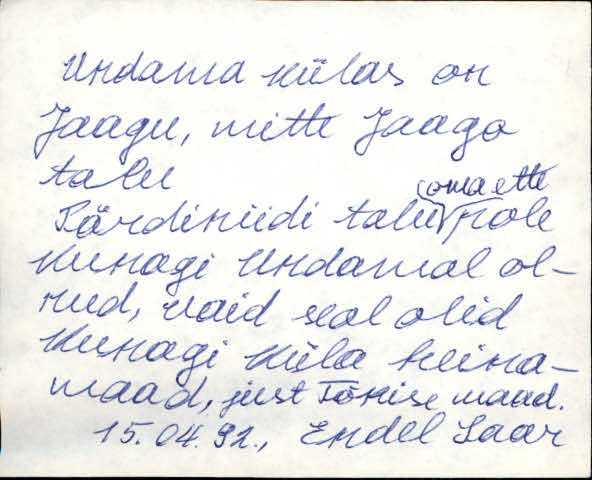 Undama külas on
Jaagu, mitte Jaago
talu
Pärdiniidi talu (omaette pole
kunagi Undamal ol-
nud, vaid seal olid
kunagi küla heina-
maad, just Tõnise maad.
15.04.92., Endel Saar